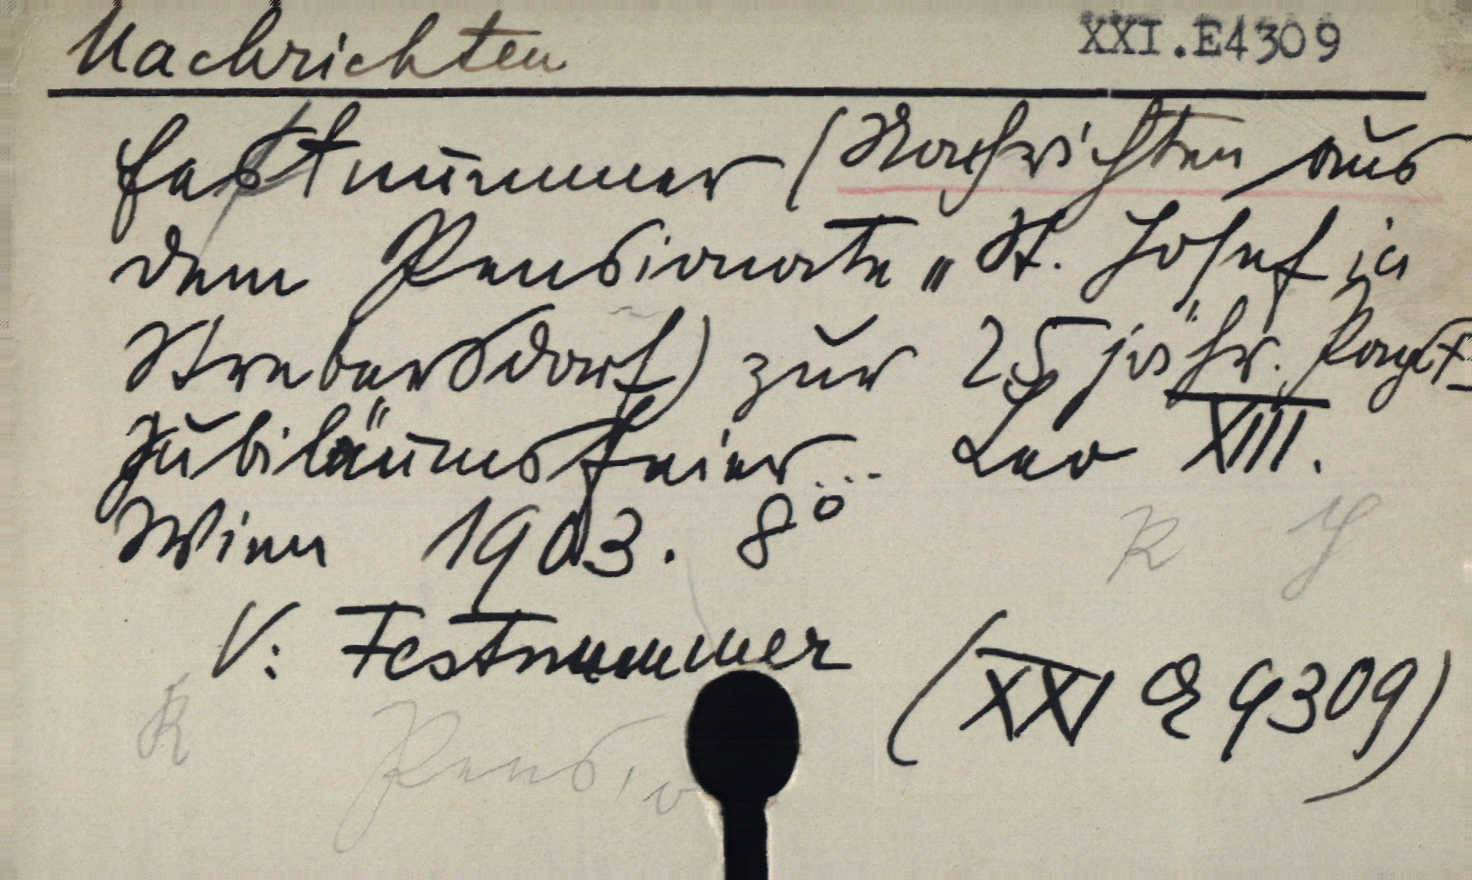 Nachrichten XXI.E4309
Festnummer (Nachrichten aus
dem Pensionate „St. Josef in
Strebersdorf) zur 25jähr. Papst-
Jubiläumsfeier... Leo XIII.
Wien 1903. 8°
R
V: Festnummer (XXI E 4309)
K Pensio